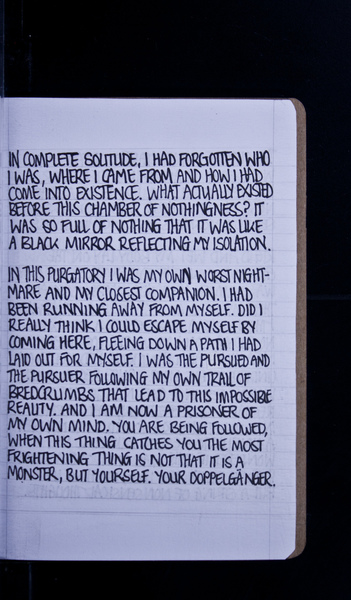 IN COMPLETE SOLITUDE, I HAD FORGOTTEN WHO
I WAS, WHERE I CAME FROM AND HOW I HAD
COME INTO EXISTENCE. WHAT ACTUALLY EXISTED
BEFORE THIS CHAMBER OF NOTHINGNESS? IT
WAS SO FULL OF NOTHING THAT IT WAS LIKE
A BLACK MIRROR REFLECTING MY ISOLATION.
IN THIS PURGATORY I WAS MY OWN WORST NIGHT-
MARE AND MY CLOSEST COMPANION. I HAD
BEEN RUNNING AWAY FROM MYSELF. DID I
REALLY THINK I COULD ESCAPE MYSELF BY
COMING HERE, FLEEING DOWN A PATH I HAD
LAID OUT FOR MYSELF. I WAS THE PURSUED AND
THE PURSUER FOLLOWING MY OWN TRAIL OF
BREDCRUMBS THAT LEAD TO THIS IMPOSSIBLE
REALITY. AND I AM NOW A PRISONER OF
MY OWN MIND. YOU ARE BEING FOLLOWED,
WHEN THIS THING CATCHES YOU THE MOST
FRIGHTENING THING IS NOT THAT IT IS A
MONSTER, BUT YOURSELF. YOUR DOPPELGÄNGER.